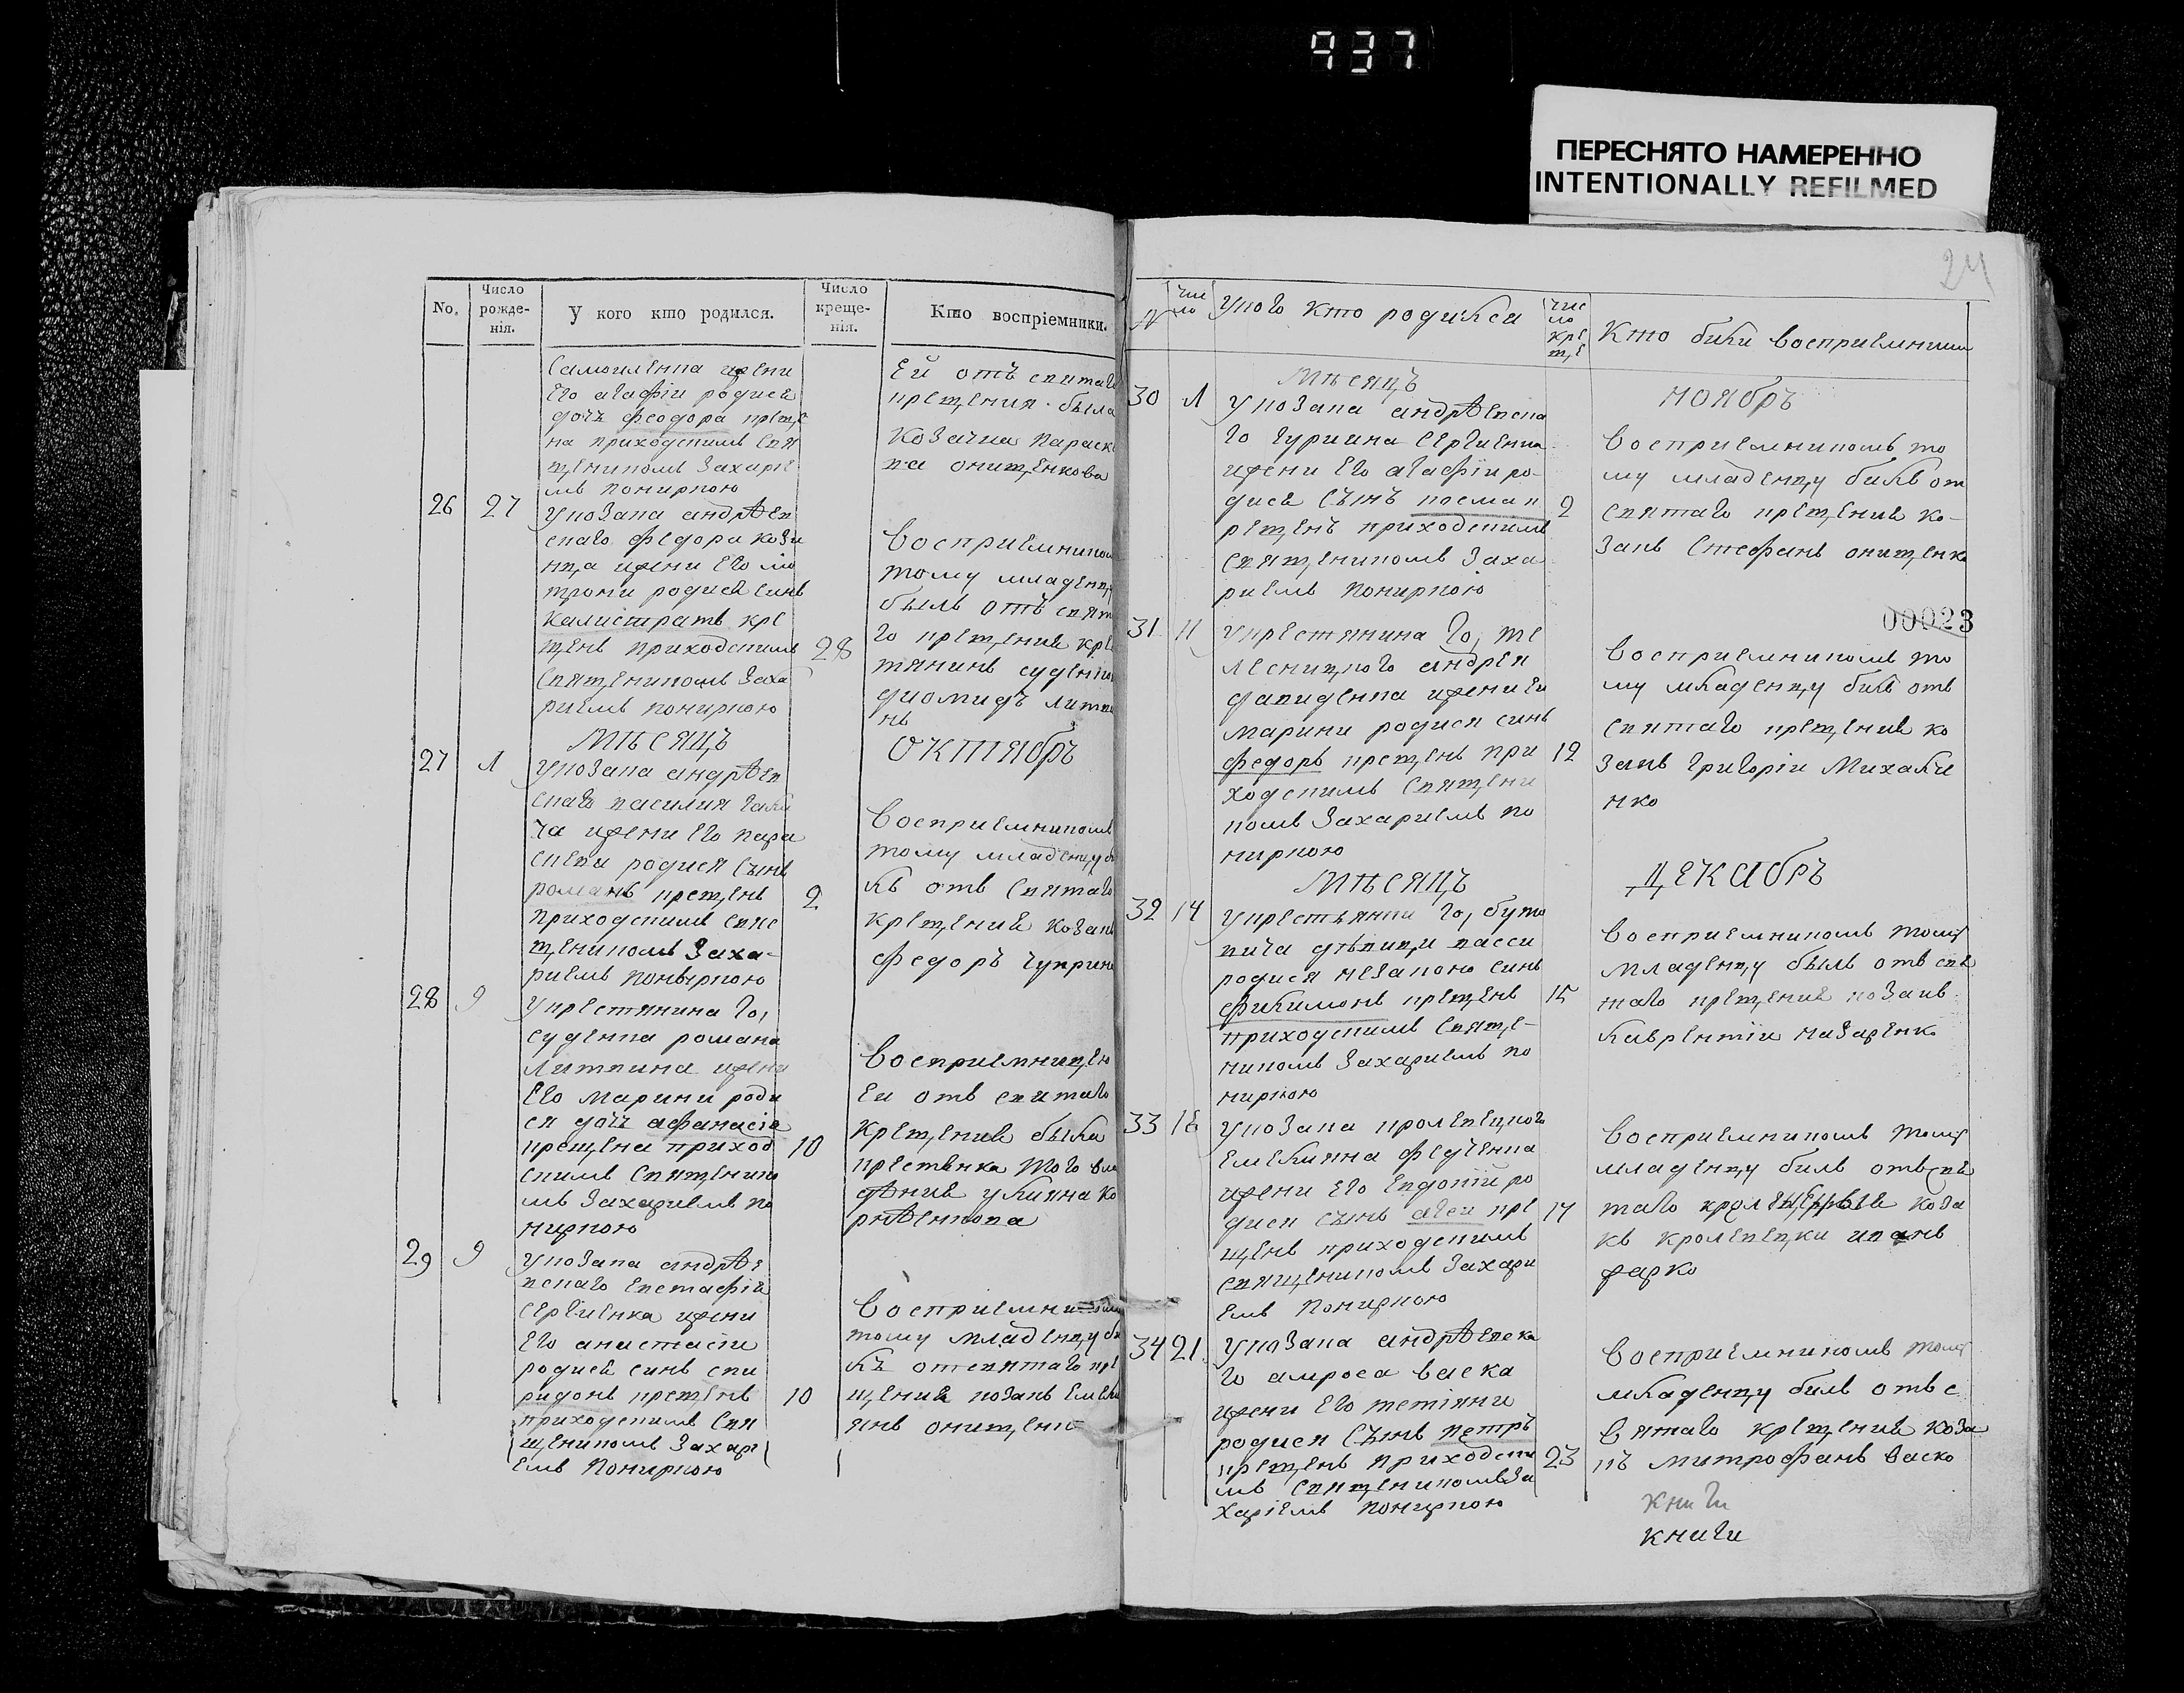 937
ПЕРЕСНЯТО НАМЕРЕННО
INTENTIONALLY REFILMED
24
No. Число рожде-нія. У кого кто родился. Число креще-нія. Кто воспріемники.
Самоиленка жени
Его агафіи родися
дочь феодора крещ,е
на приходскимъ свя
щ,еникомъ Захарiе
мъ Пониркою
Ей отъ святаго
крещ,ения была
Козачка Параск
ва онищ,енкова
26 27 у козака андрѣев
скаго федора кози
нц,а жени Его мо
трони родися синъ
Калистратъ кре
щ,енъ приходскимъ 28
Свящ,еникомъ Заха
риемъ пониркою
Восприемником
тому младенц,у
былъ отъ свят
го крещ,ения кре
тянинъ суденко
диомидъ литви
нъ
мѣсяцъ ОКТЯбрЪ
27 1 у козака андрѣев
скаго василия гала
ча жени Его пара
скеви родися Сынъ
романъ крещ,енъ 2
приходскимъ свяс
щ,еникомъ Заха-
риемъ Поныркою
Восприемникомъ
тому младенц,у б
лъ отъ Святаго
крещ,ения козакъ
федоръ чуприна
28 9 у крестянина го,
суденка романа
литвина жени
Его марини роди
ся дочь афанасіа
крещ,ена приход 10
скимъ Свящ,еника
мъ Захариемъ По
ниркою
Восприемниц,ею
Еи отъ святаго
крещ,ения была
крестянка того вла
дѣния улияна ко
рнѣенкова
29 9 у козака андрѣе
вскаго Евстафія
сергиенка жени
Его анастасіи
родися синъ спи
ридонъ крещ,енъ 10
приходскимъ Свя
щ,еникомъ Захарі
Емъ Пониркою
Восприемникомъ
тому младенц,у би
лъ отсвятаго кре
щ,ения козакъ Емели
янъ онищ,енко
N число у кого кто родился число крещ,е Кто били восприемники
мѣсяцъ НОЯбрЪ
30 1 у козака андрѣевска
го гуриина Сергиенка
жени Его агафіи ро-
дися Сынъ косма к 2
рещ,енъ приходскимъ
Свящ,еникомъ Заха
риемъ Пониркою
восприемникомъ то
му младенц,у билъ от
святаго крещ,ения ко-
закъ Стефанъ онищ,енко
00023
31 11 у крестянина го, те
лесниц,кого андрея
давиденка жени Еи
марини родися синъ
федоръ крещ,енъ при 12
ходскимъ Свящ,ени
комъ Захариемъ По
ниркою
Восприемникомъ то
му младенц,у билъ отъ
святаго крещ,ения ко
закъ григоріи Михаили
нко
мѣсяцъ ДЕКАбрЪ
32 14 у крестьянки го, буто
вича дѣвиц,и васси
родися незаконо синъ
филимонъ крещ,енъ 15
приходскимъ Свящ,е-
никомъ Захариемъ По
ниркою
Восприемникомъ тому
младенц,у былъ отъ свя
таго крещ,ения козакъ
лаврентіи назаренко
33 16 у козака кролевец,кого
Емелияна федченка
жени Его Евдокіи ро
дися сынъ агеи кре 17
щ,енъ приходскимъ
свящ,еникомъ Захари
Емъ Пониркою
Восприемникомъ тому
младенц,у билъ отъ свя
таго крещ,ения коза
къ кролевец,ки иванъ
фарко
34 21 у козака андрѣевска
го амроса васка
жени Его тетіяни
родися Сынъ петръ
крещ,енъ приходски 23
мъ Свящ,еникомъ За
харіемъ Пониркою
Восприемникомъ тому
младенц,у билъ отъ с
вятаго крещ,ения коза
къ митрофанъ Васко
книги
книги